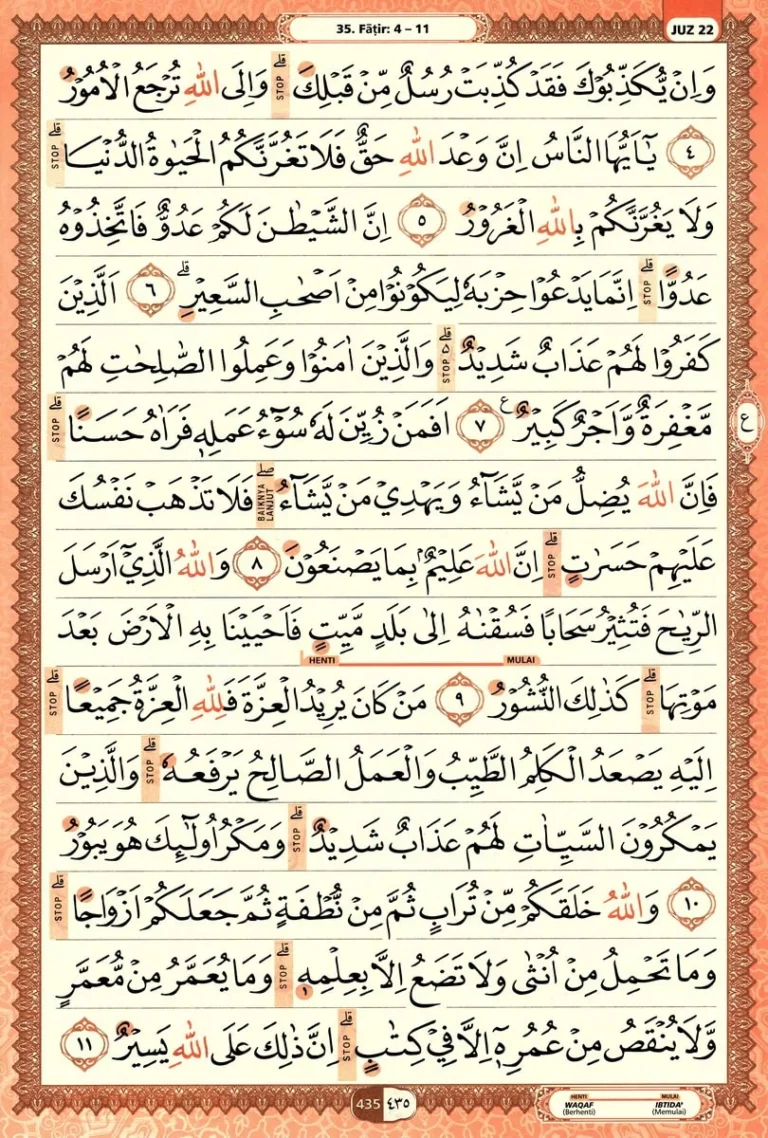 35. Fāṭir: 4 – 11
JUZ 22
وَاِنْ يُّكَذِّبُوْكَ فَقَدْ كُذِّبَتْ رُسُلٌ مِّنْ قَبْلِكَۗ STOP وَاِلَى اللّٰهِ تُرْجَعُ الْاُمُوْرُ
٤ يٰٓاَيُّهَا النَّاسُ اِنَّ وَعْدَ اللّٰهِ حَقٌّ فَلَا تَغُرَّنَّكُمُ الْحَيٰوةُ الدُّنْيَاۗ STOP
وَلَا يَغُرَّنَّكُمْ بِاللّٰهِ الْغَرُوْرُ ٥ اِنَّ الشَّيْطٰنَ لَكُمْ عَدُوٌّ فَاتَّخِذُوْهُ
عَدُوًّاۗ STOP اِنَّمَا يَدْعُوْا حِزْبَهٗ لِيَكُوْنُوْا مِنْ اَصْحٰبِ السَّعِيْرِۗ ٦ اَلَّذِيْنَ
كَفَرُوْا لَهُمْ عَذَابٌ شَدِيْدٌ ەۗ STOP وَالَّذِيْنَ اٰمَنُوْا وَعَمِلُوا الصّٰلِحٰتِ لَهُمْ
مَّغْفِرَةٌ وَّاَجْرٌ كَبِيْرٌ ع ٧ اَفَمَنْ زُيِّنَ لَهٗ سُوْۤءُ عَمَلِهٖ فَرَاٰهُ حَسَنًاۗ STOP
ع
فَاِنَّ اللّٰهَ يُضِلُّ مَنْ يَّشَاۤءُ وَيَهْدِيْ مَنْ يَّشَاۤءُۖ BAIKNYA LANJUT فَلَا تَذْهَبْ نَفْسُكَ
عَلَيْهِمْ حَسَرٰتٍۗ STOP اِنَّ اللّٰهَ عَلِيْمٌۢ بِمَا يَصْنَعُوْنَ ٨ وَاللّٰهُ الَّذِيْٓ اَرْسَلَ
الرِّيٰحَ فَتُثِيْرُ سَحَابًا فَسُقْنٰهُ اِلٰى بَلَدٍ مَّيِّتٍ فَاَحْيَيْنَا بِهِ الْاَرْضَ بَعْدَ
HENTI MULAI
مَوْتِهَاۗ STOP كَذٰلِكَ النُّشُوْرُ ٩ مَنْ كَانَ يُرِيْدُ الْعِزَّةَ فَلِلّٰهِ الْعِزَّةُ جَمِيْعًاۗ STOP
اِلَيْهِ يَصْعَدُ الْكَلِمُ الطَّيِّبُ وَالْعَمَلُ الصَّالِحُ يَرْفَعُهٗۗ STOP وَالَّذِيْنَ
يَمْكُرُوْنَ السَّيِّاٰتِ لَهُمْ عَذَابٌ شَدِيْدٌۗ STOP وَمَكْرُ اُولٰۤىِٕكَ هُوَ يَبُوْرُ
١٠ وَاللّٰهُ خَلَقَكُمْ مِّنْ تُرَابٍ ثُمَّ مِنْ نُّطْفَةٍ ثُمَّ جَعَلَكُمْ اَزْوَاجًاۗ STOP
وَمَا تَحْمِلُ مِنْ اُنْثٰى وَلَا تَضَعُ اِلَّا بِعِلْمِهٖۗ STOP وَمَا يُعَمَّرُ مِنْ مُّعَمَّرٍ
وَّلَا يُنْقَصُ مِنْ عُمُرِهٖٓ اِلَّا فِيْ كِتٰبٍۗ STOP اِنَّ ذٰلِكَ عَلَى اللّٰهِ يَسِيْرٌ ١١
435 ٤٣٥
HENTI MULAI
WAQAF IBTIDA'
(Berhenti) (Memulai)